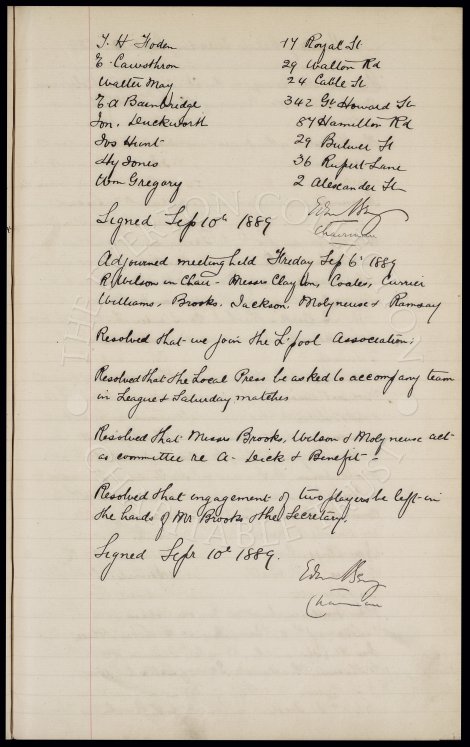 T. H Foden 17 Royal St
E. Cawthron 29 Walton Rd
Walter May 24 Cable St
E A Bainbridge 342 Gt Howard St
Jon. Duckworth 87 Hamilton Rd
Jos Hunt 29 Bulwer St
Hy Jones 36 Rupert Lane
Wm Gregory 2 Alexander St
Signed Sep 10th 1889
Chairman
Adjourned meeting held Friday Sep 6th 1889
R Wilson in Chair - Messrs Clayton, Coates, Currier
Williams, Brooks, Jackson, Molyneux & Ramsay
Resolved that we join the L'pool Association.
Resolved that the Local Press be asked to accompany team
in League & Saturday matches
Resolved that Messrs Brooks, Wilson & Molyneux act
as committee re A. Dick & Benefit.
Resolved that engagement of two players be left in
the hands of Mr Brooks & the Secretary.
Signed Sepr 10th 1889.
Chairman
THE EVERTON COLLECTION
CHARITABLE TRUST